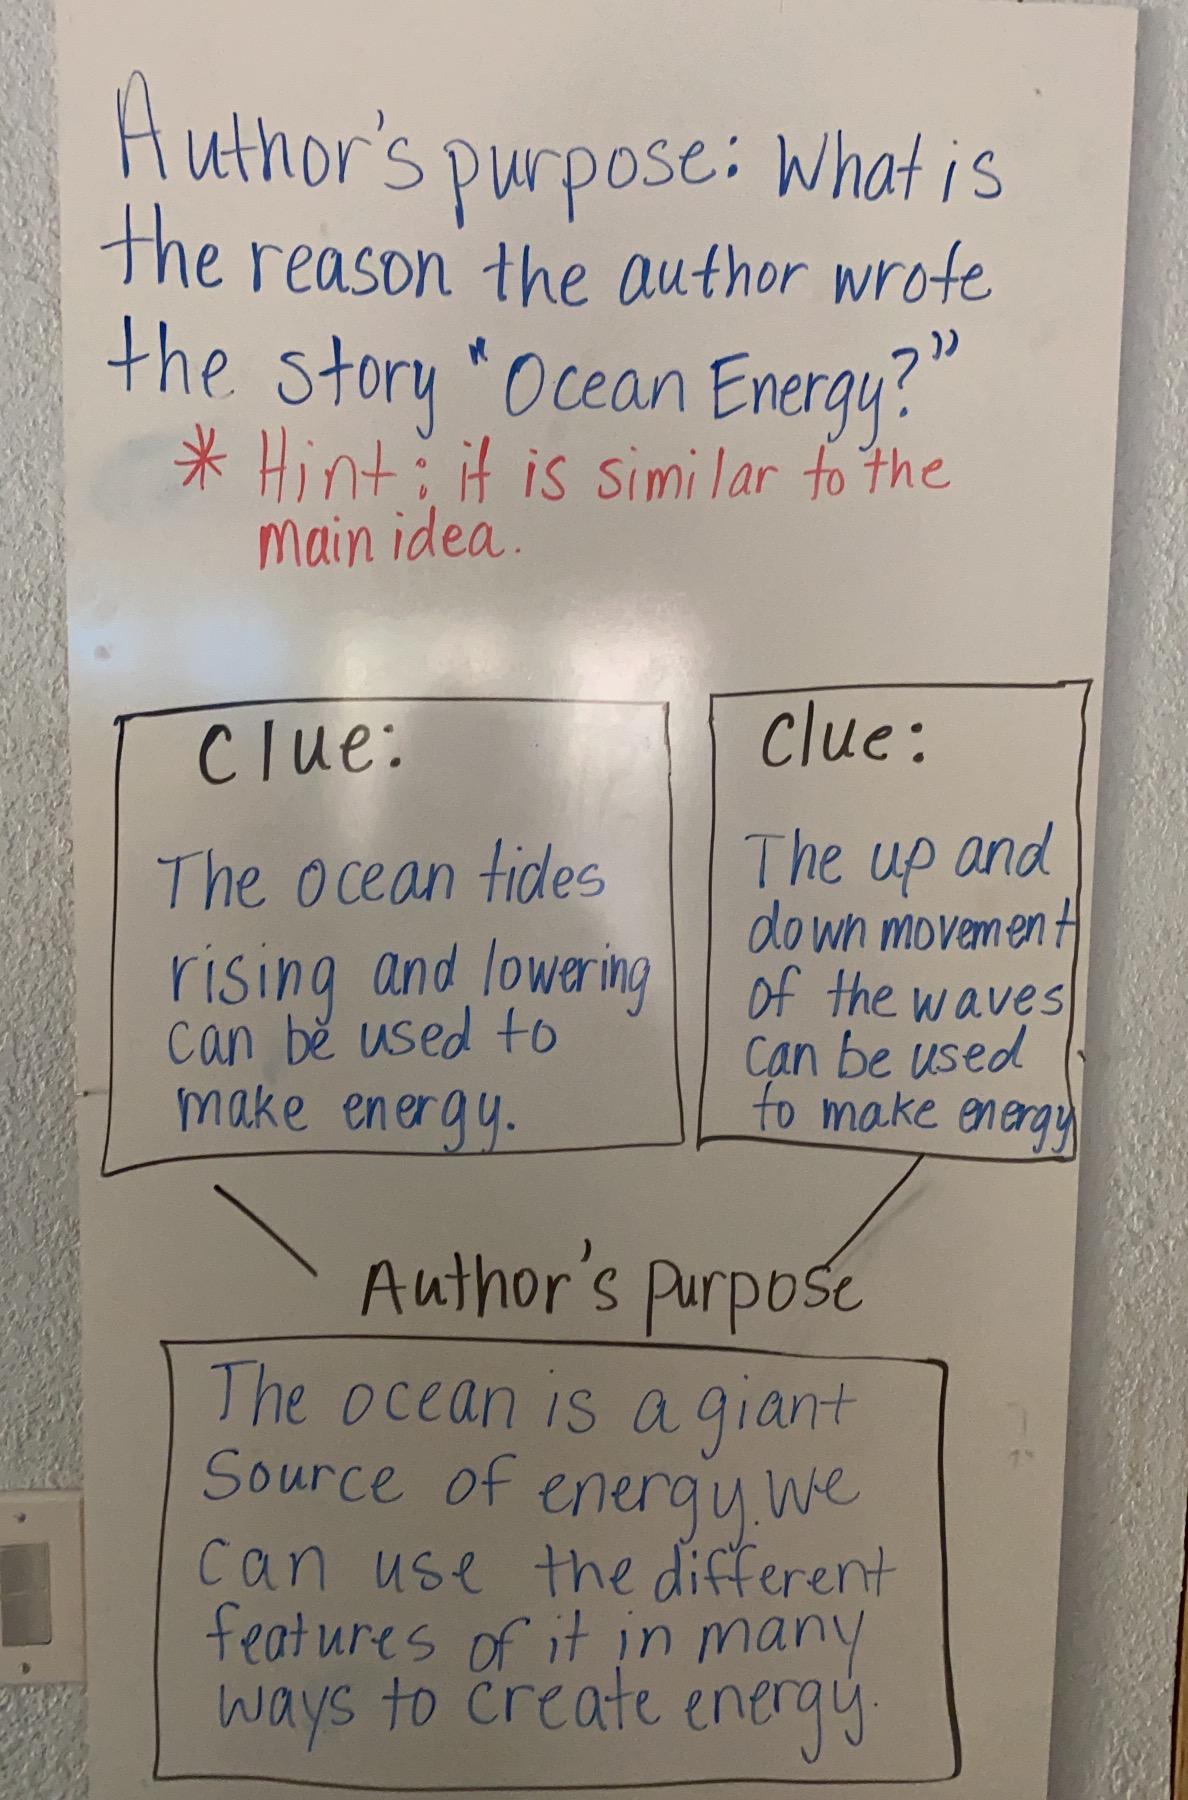 Author's purpose: What is
the reason the author wrote
the story "Ocean Energy?"
* Hint: it is similar to the
main idea.
Clue:
The ocean tides
rising and lowering
can be used to
make energy.
Clue:
The up and
down movement
of the waves
can be used
to make energy
Author's purpose
The ocean is a giant
Source of energy. We
can use the different
features of it in many
ways to create energy.